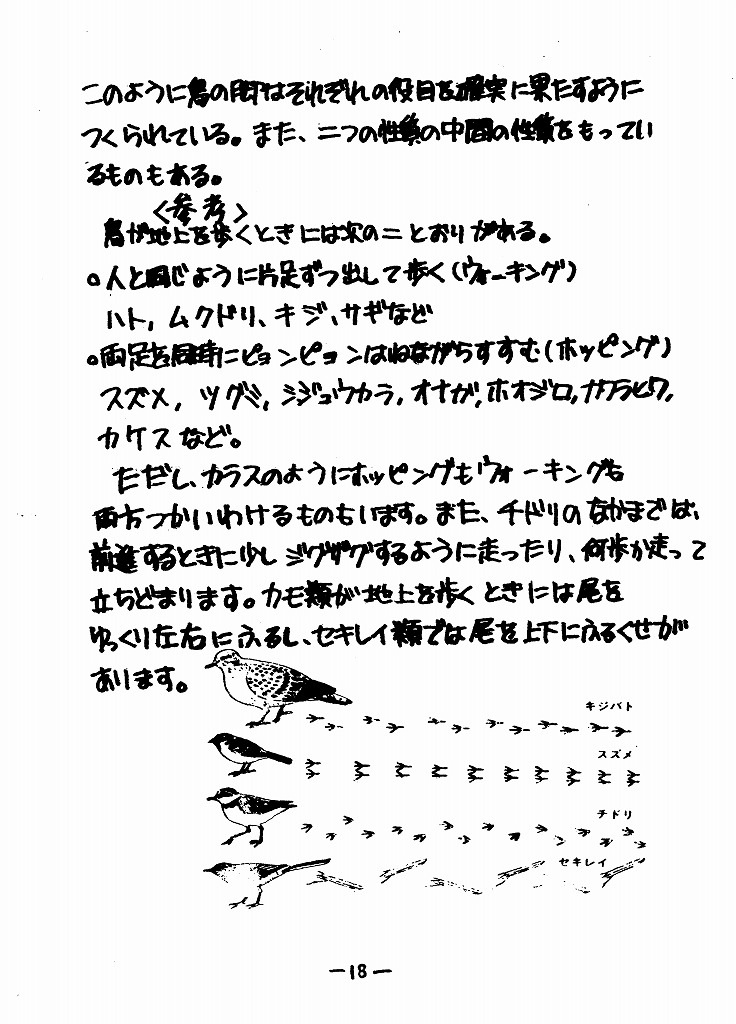 このように鳥の脚はそれぞれの役目を確実に果たすように
つくられている。また、二つの性質の中間の性質をもってい
るものもある。
<参考>
鳥が地上を歩くときには次の二とおりがある。
○人と同じように片足ずつ出して歩く(ウォーキング)
ハト, ムクドリ、キジ、サギなど
○両足を同時にピョンピョンはねながらすすむ(ホッピング)
スズメ, ツグミ, シジュウカラ, オナガ, ホオジロ, カワラヒワ,
カケスなど。
ただし、カラスのようにホッピングもウォーキングも
両方つかいわけるものもいます。また、チドリのなかまでは、
前進するときに少しジグザグするように走ったり、何歩か走って
立ちどまります。カモ類が地上を歩くときには尾を
ゆっくり左右にふるし、セキレイ類では尾を上下にふるくせが
あります。
キジバト
スズメ
チドリ
セキレイ
—18—